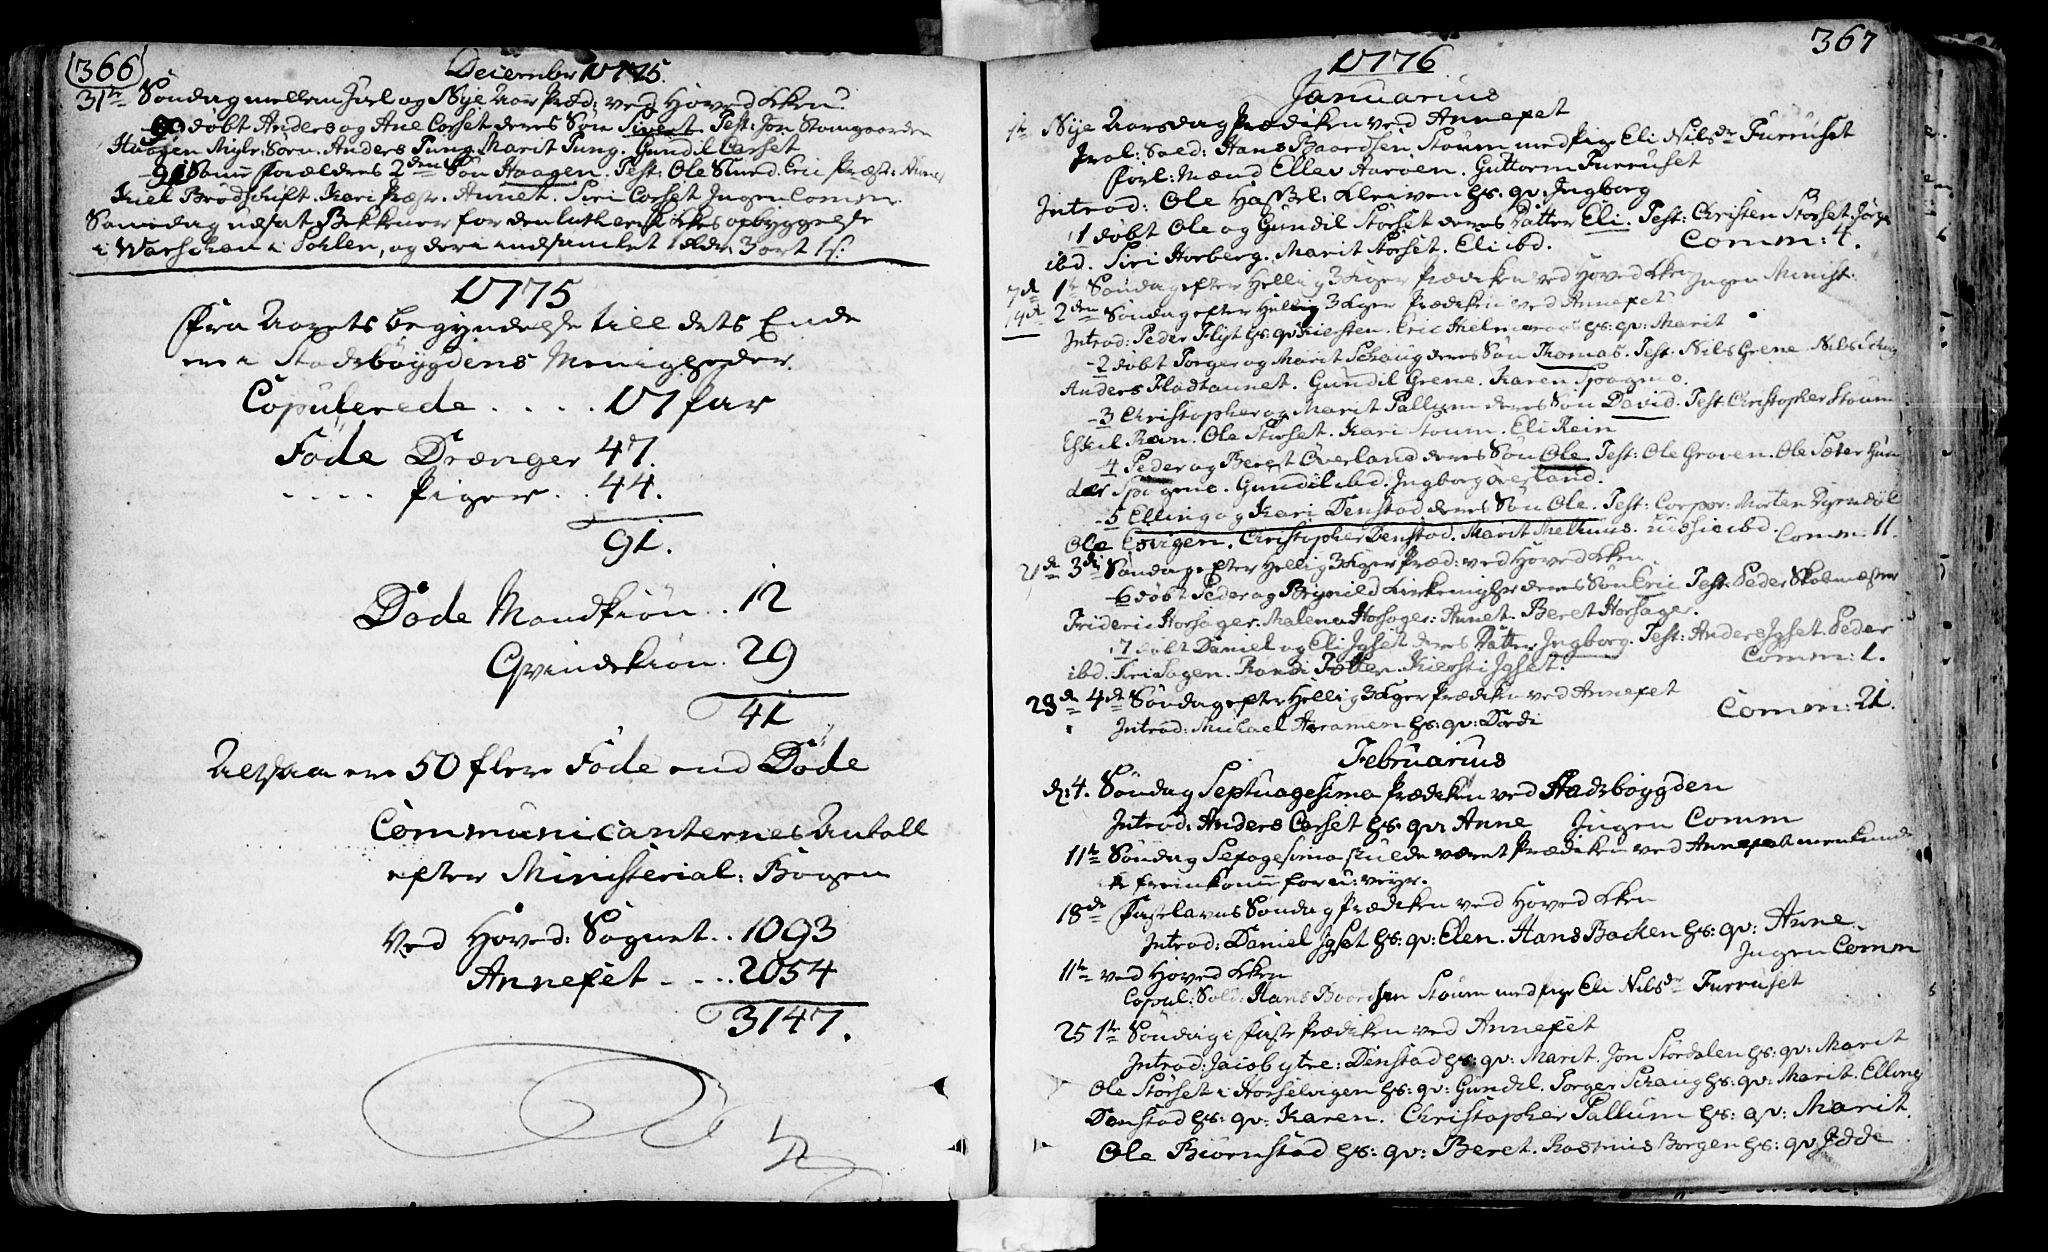 366
December 1775.
31te Søndag mellem Juel og Nye Aar Præd: ved Hoved Kken
90 døbt Anders og Ane Corset deres Søn Sivert. Test: Jon Stamgaarden
Haagen Mylr: Sørn. Anders Tung. Marit Tung. Gundil Corset
91 Samme Forældres 2den Søn Haagen. Test: Ole Smed. Eric Præst:
Kiel Brødskift. Kari Præst: Annet. Siri Corset Ingen Comm
Samedag udsat Bekkener for den lutherske Kkes opbyggelse
i Warschau i Pohlen, og der indsamlet 1 rdr 3 ort 1 s:
1775
Fra Aarets begyndelse till dets Ende
ere i Stadsbøygdens Menigheder
Copulerede . . . . 17 par
Føde Drænger 47.
. . . . Piger . . 44.
91.
Døde Mandkiøn . . 12
Qvindekiøn . 29
41
Altsaa ere 50 flere Føde end Døde
Communicanternes Antall
efter Ministerial: Bogen
Ved Hoved: Sognet . . 1093
Annexet . . . 2054
3147.
367
1776
Januarius
1te Nye Aarsdag Prædiken ved Annexet
Prol: Sold: Hans Baardsen Stoum med pige Eli Nilsdr Furruset
Forl: Mænd Ellev Aarøen. Guttorm Furruset
Introd: Ole Hassel: Kleiven hs: qv: Ingborg
1 døbt Ole og Gundil Storset deres Datter Eli. Test: Christen Storset. Jørge
ibd. Siri Horberg. Marit Storset. Eli ibd. Comm: 4.
7de 1te Søndag efter Hellig 3 Kger Prædiken ved Hoved Kken Ingen Minist:
14de 2den Søndag efter Hellig 3 Kger Prædiken ved Annexet
Introd: Peder Flyt hs: qv: Kiersten. Eric Hielmeraas hs: qv: Marit
2 døbt Torger og Marit Schaug deres Søn Thomas. Test: Nils Grene. Nils Schaug
Anders Fladtaunet. Gundil Grene. Karen Spoagmo.
3 Christopher og Marit Pallum deres Søn David. Test: Christopher Stoum
Eskil Rein. Ole Storset. Kari Stoum. Eli Rein
4 Peder og Beret Øverland deres Søn Ole. Test: Ole Groven. Ole Sæter Gun
der Spogmo. Gundil ibd. Ingborg Øverland.
5 Elling og Kari Denstad deres Søn Ole. Test: Corpor: Morten Dyrendal
Ole Esvigen. Christopher Denstad. Marit Melhuus. ibd. Comm: 11.
21de 3die Søndag efter Hellig 3 Kger Præd: ved Hoved Kken
6 døbt Peder og Brynild Kirkenighter deres Søn Eric Test: Peder Skolmester
Frideric Horsager. Malena Horsager. Annet. Beret Horsager.
7 døbt Daniel og Eli Igset deres Datter Ingborg. Test: Anders Igset. Peder
ibd. Siri Sagen. Randi Totten. Kiersti Igset. Comm: 1.
28de 4de Søndag efter Hellig 3 Kger Prædiken ved Annexet
Introd: Michael Abramsen hs: qv: Dordi Comm: 21.
Februarius
d: 4. Søndag Septuagesima Prædiken ved Stadsbøygden
Introd: Anders Corset hs: qv: Anne Ingen Comm
11te Søndag Sexagesima skulde været Prædiken ved Annexet men kunde
ik fremkomme for u: veyr.
18de Fastelavns Søndag Prædiken ved Hoved Kken
Introd: Daniel Igset hs: qv: Elen. Hans Backen hs: qv: Anne.
Ingen Comm
11te ved Hoved Kken
Copul: Sold: Hans Baardsen Stoum med pige Eli Nilsdr Furruset
25 1te Søndag i Faste Prædiken ved Annexet
Introd: Jacob ytre: Denstad hs: qv: Marit. Jon Stordalen hs: qv: Marit
Ole Storset i Horselvigen hs: qv: Gundil. Torger Schaug hs: qv: Marit. Elling
Denstad hs: qv: Karen. Christopher Pallum hs: qv: Marit.
Ole Biørnstad hs: qv: Beret. Rasmus Borgen hs: qv: Gidde